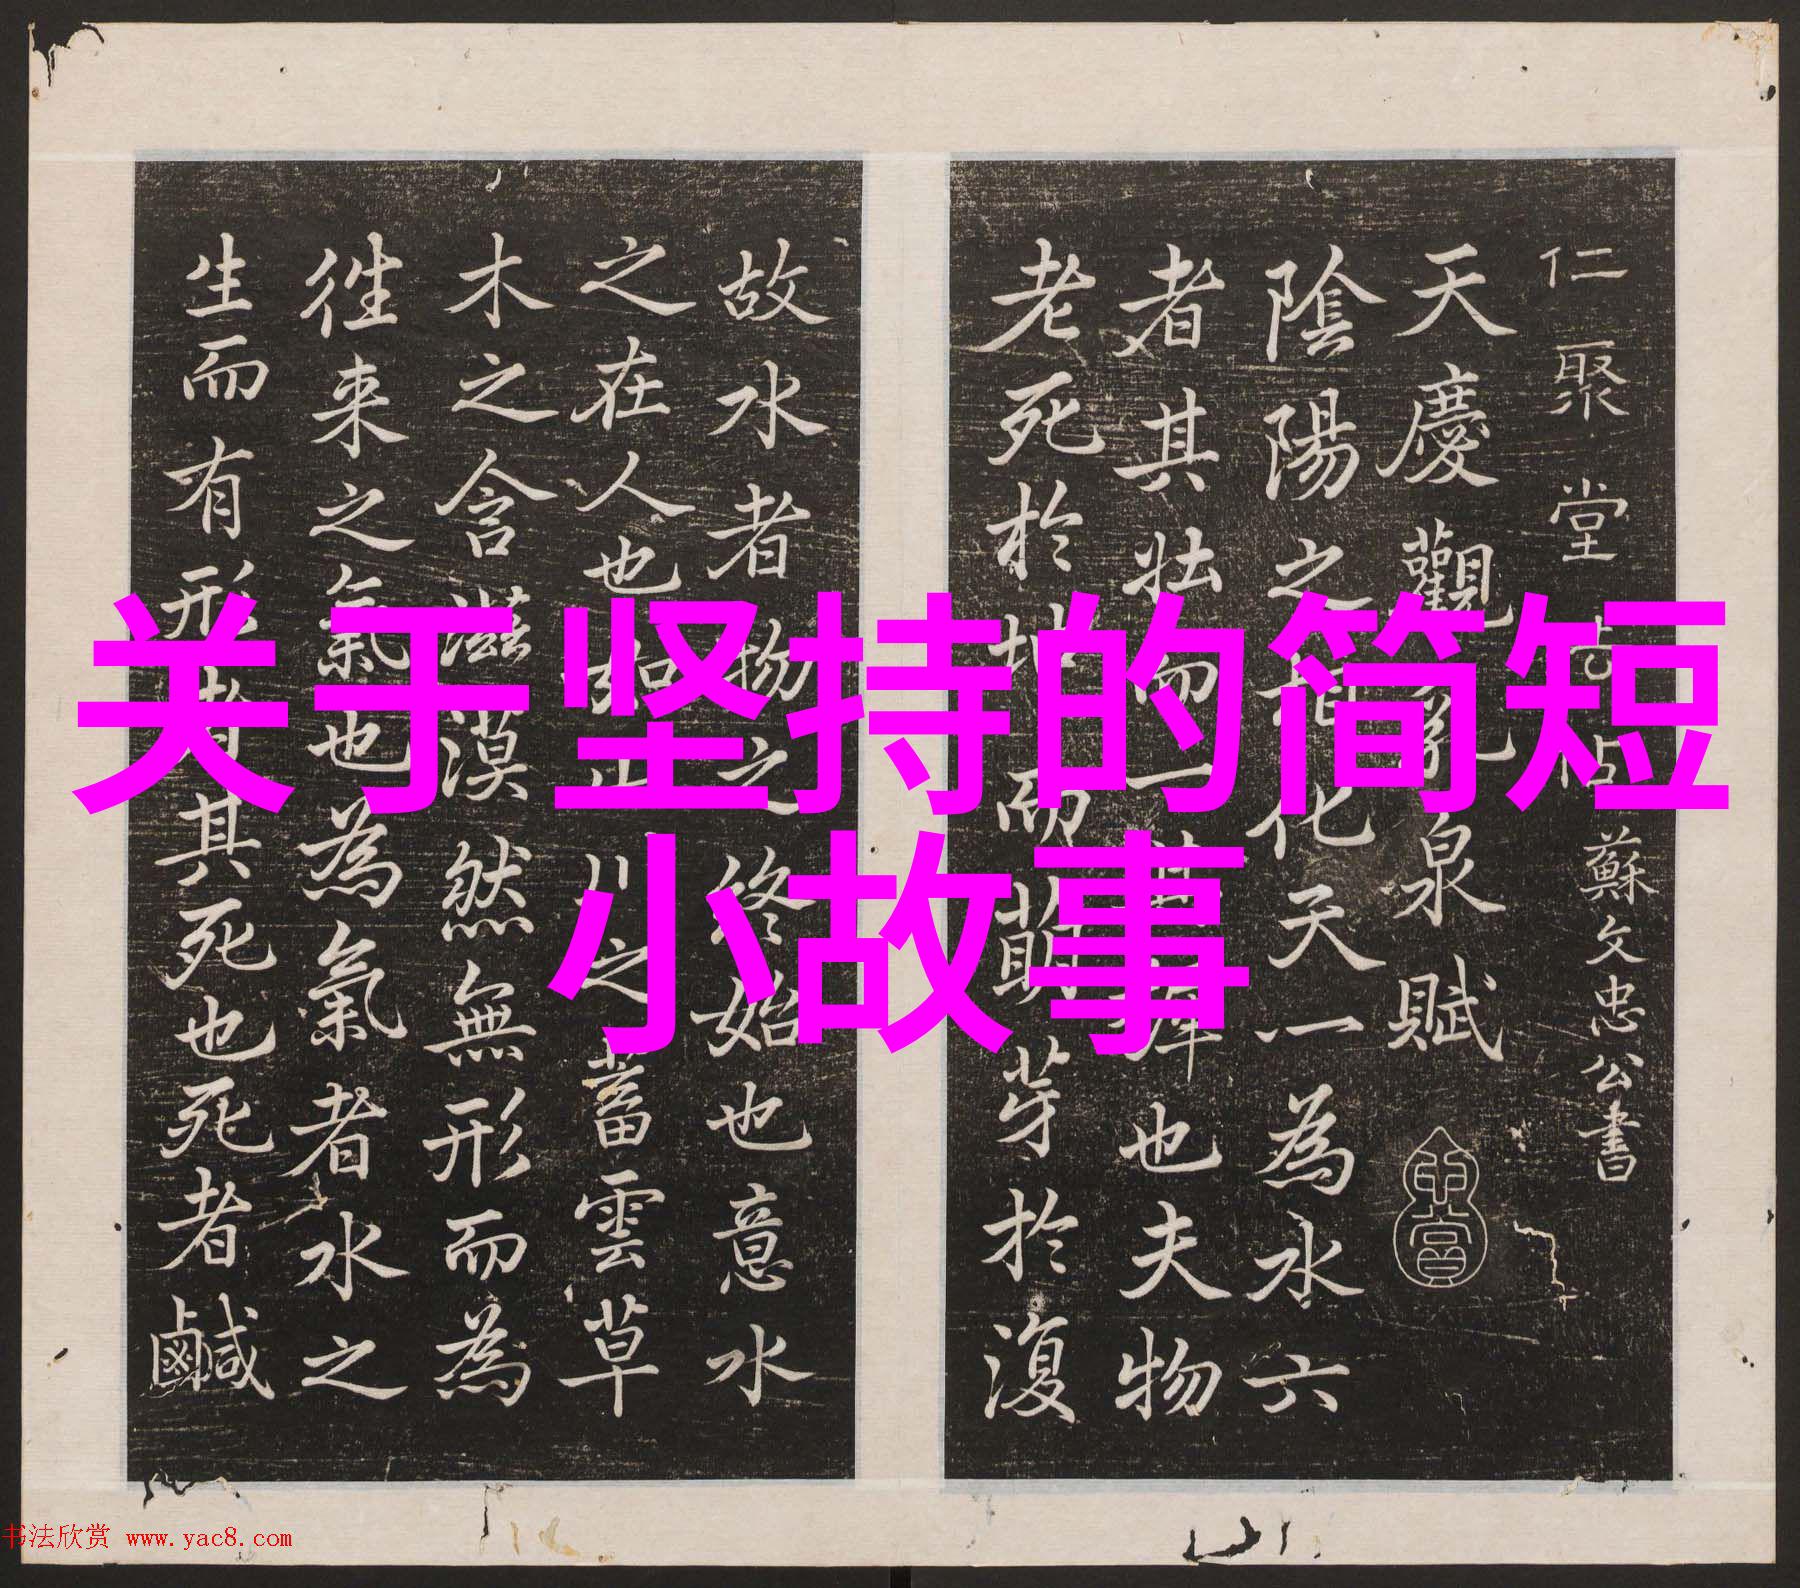 关于坚持的简短
小故事
仁聚堂
蘇文忠公書
天慶觀乳泉賦
陰陽之 化天一為水六
者其壯而一其 也夫物
老死於地而萌芽於復
故水者物之終始也意水
之在人也 山川之蓄雲草
木之含滋漠然無形而為
徃来之氣也為氣者水之
生而有形者其死也死者鹹
书法欣赏 www.yac8.com